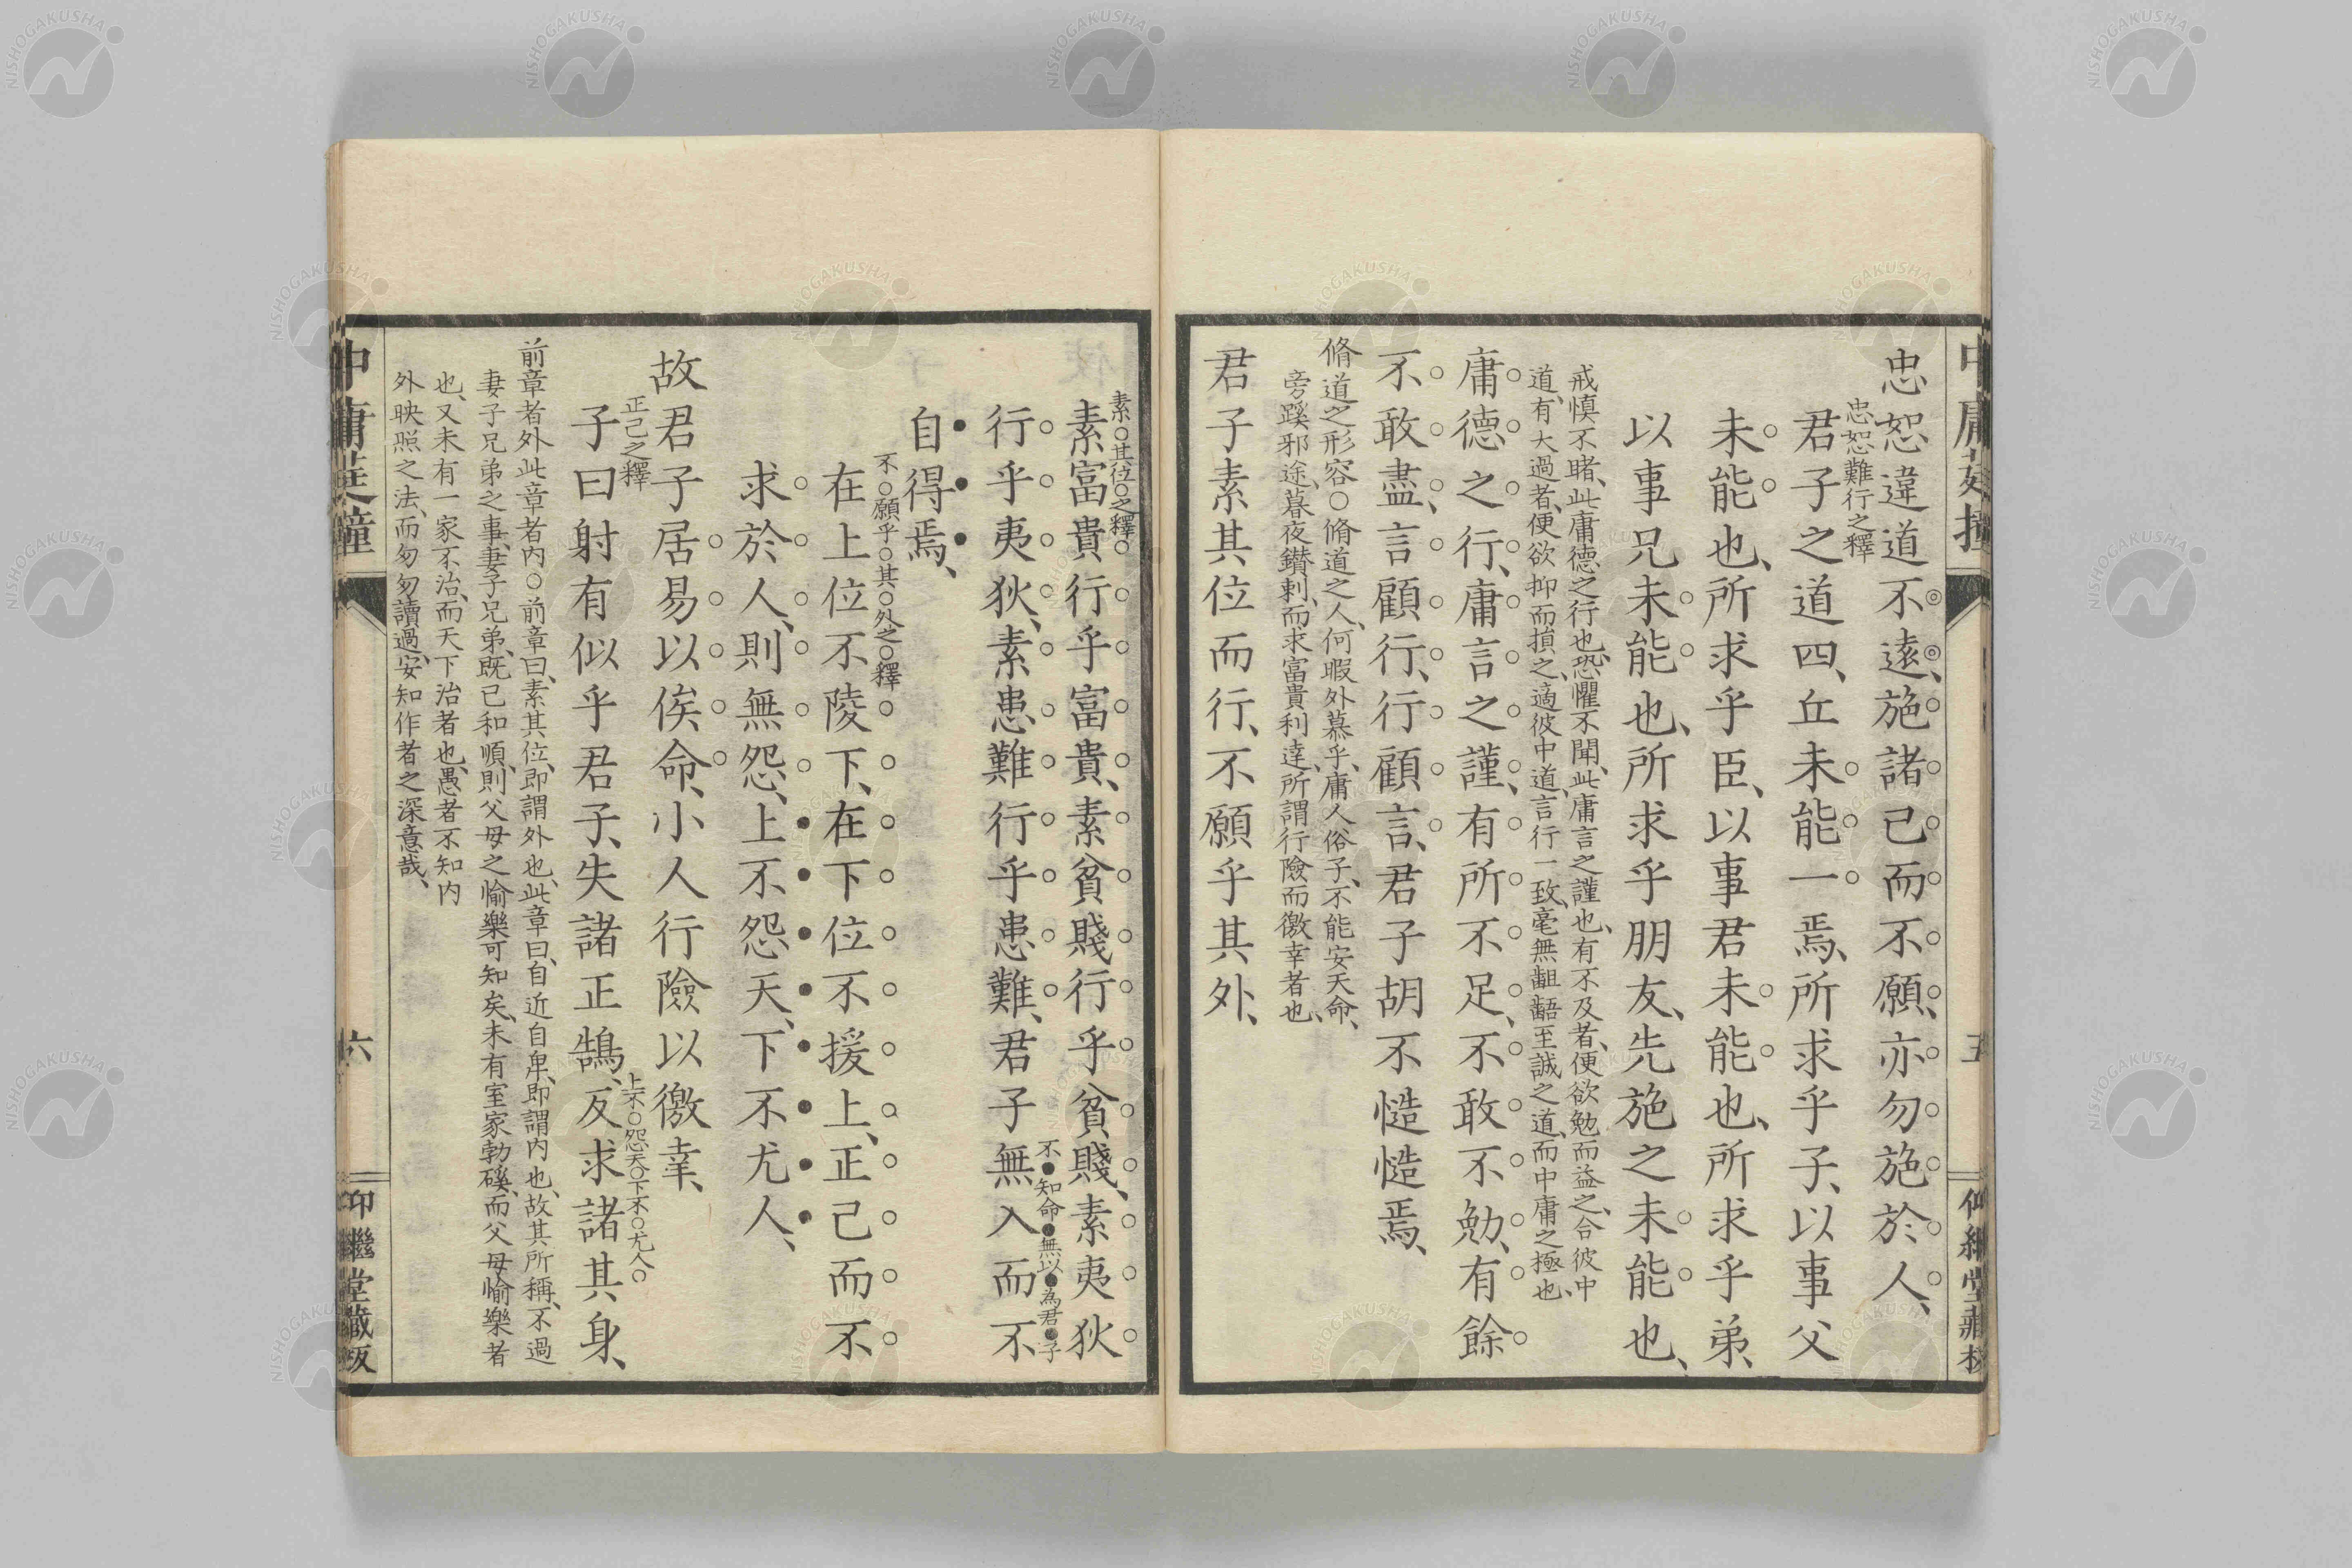 忠恕違道不遠、施諸己而不願、亦勿施於人、
忠恕難行之釋
君子之道四、丘未能一焉、所求乎子、以事父
未能也、所求乎臣、以事君未能也、所求乎弟、
以事兄未能也、所求乎朋友、先施之未能也、
戒慎不睹、此庸德之行也、恐懼不聞、此庸言之謹也、有不及者、便欲勉而益之、合彼中
道、有大過者、便欲抑而損之、適彼中道、言行一致、毫無齟齬至誠之道、而中庸之極也、
庸德之行、庸言之謹、有所不足、不敢不勉、有餘
不敢盡、言顧行、行顧言、君子胡不慥慥焉、
脩道之形容○脩道之人、何暇外慕乎、庸人俗子、不能安天命、
旁蹊邪途、暮夜鑚刺、而求富貴利達、所謂行險而徼幸者也、
君子素其位而行、不願乎其外、
五
素○其位○之釋○
素富貴行乎富貴、素貧賤行乎貧賤、素夷狄
行乎夷狄、素患難行乎患難、君子無入而不
不●知命●無以●為君●子
自得焉、
不○願乎○其○外之○釋
在上位不陵下、在下位不援上、正己而不
求於人、則無怨、上不怨天、下不尤人、
故君子居易以俟命、小人行險以徼幸、
正己之釋
上不○怨天○下不○尤人○
子曰射有似乎君子、失諸正鵠、反求諸其身、
前章者外此章者内○前章曰、素其位、即謂外也、此章曰、自近自卑、即謂内也、故其所稱、不過
妻子兄弟之事、妻子兄弟、既已和順、則父母之愉樂可知矣、未有室家勃磎、而父母愉樂者
也、又未有一家不治、而天下治者也、愚者不知内
外映照之法、而匆匆讀過、安知作者之深意哉、
中庸莛撞
六
仰繼堂藏板